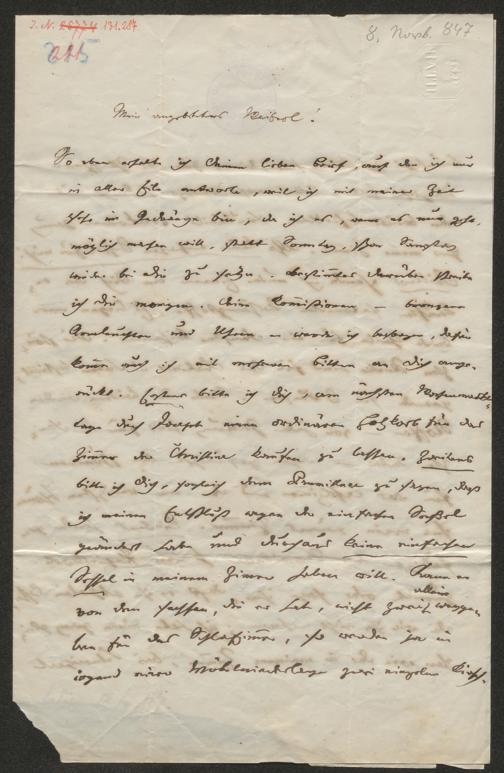 I. N. 131.287
215
8. Novb. 847
Mein angebetetes Weiberl!
So eben erhalte ich Deinen lieben Brief, auf den ich nur
in aller Eile antworte, weil ich mit meiner Zeit
sehr im Gedränge bin, da ich es, wenn es nur geht
möglich machen will, statt Sonntag, schon Samstag
wieder bei Dir zu sein. Bestimmtes darüber schreibe
ich Dir morgen. Deine Commissionen –
und Uhren – werde ich besorgen, dafür
komme auch ich mit mehreren Bitten an Dich ange-
rückt. Erstens bitte ich Dich, am nächsten Wochenmarkt-
tage durch Joseph einen ordinären Holzkorb für das
Zimmer der Christine kaufen zu lassen. Zweitens
bitte ich Dich, sogleich dem zu sagen, daß
ich meinen Entschluß wegen der einfachen Sessel
geändert habe und durchaus keine einfachen
Sessel in meinem Zimmer haben will. Kann er
von den sechsen, die er hat, nicht zwei alleine
für das Schlafzimmer, so werden ja in
irgend einer Möbelniederlage zwei einzelne